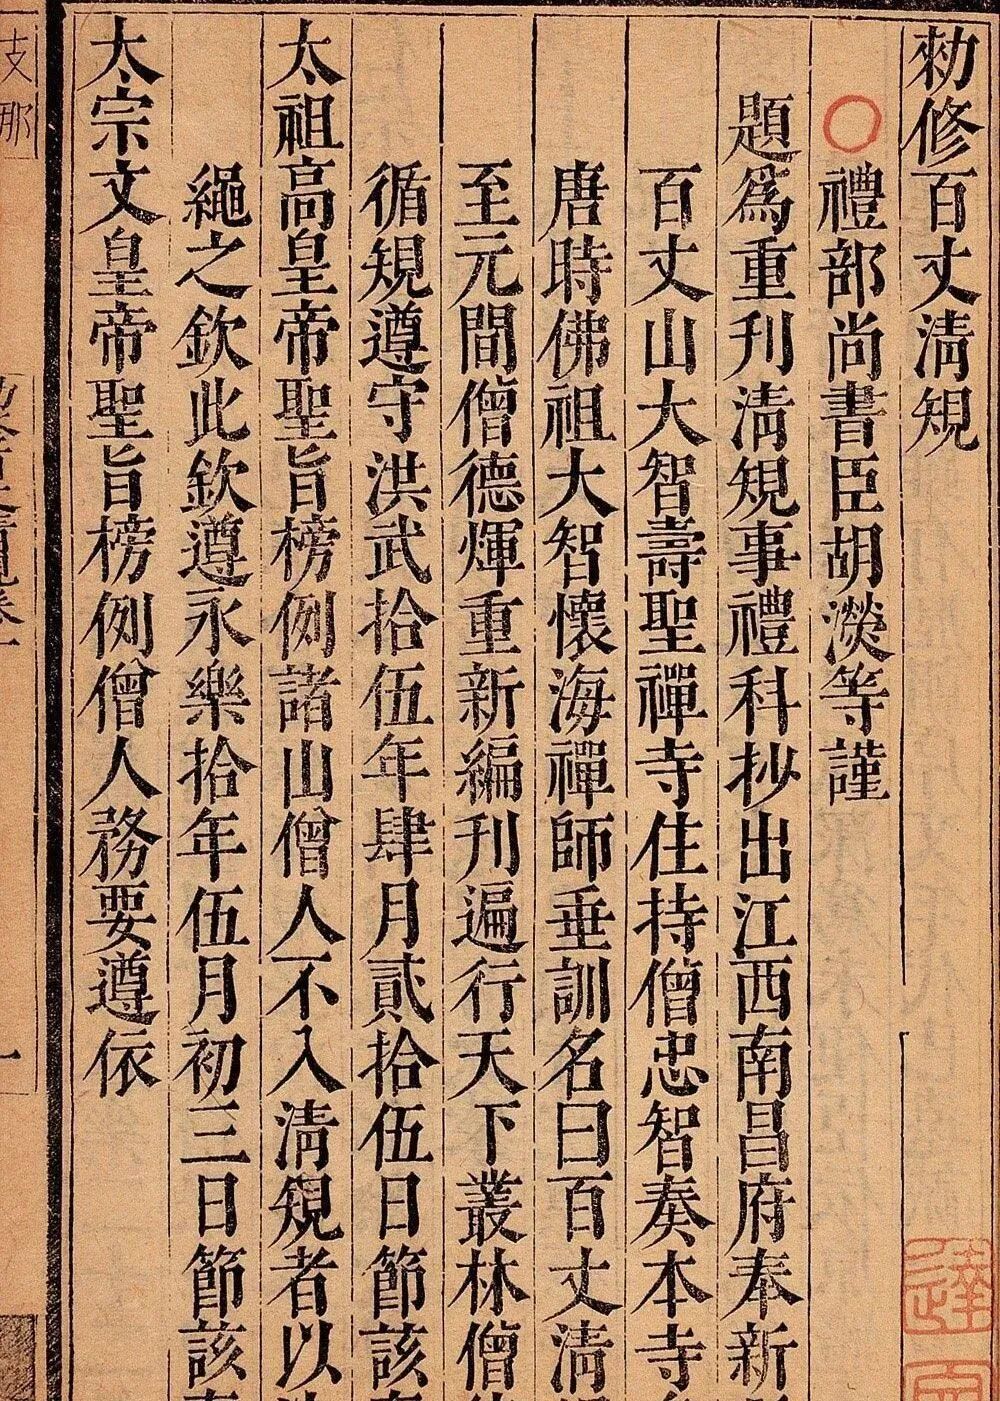 勑修百丈淸䂓
禮部尚書臣胡濙等謹
題爲重刋淸䂓事禮科抄出江西南昌府奉新
百丈山大智壽聖禪寺住持僧忠智奏本寺
唐時佛祖大智懷海禪師垂訓名曰百丈淸
至元間僧德煇重新編刋遍行天下叢林僧
循䂓遵守洪武拾伍年肆月貳拾伍日節該
太祖高皇帝聖旨榜例諸山僧人不入淸䂓者以
繩之欽此欽遵永樂拾年伍月初三日節該
太宗文皇帝聖旨榜例僧人務要遵依
支那
一